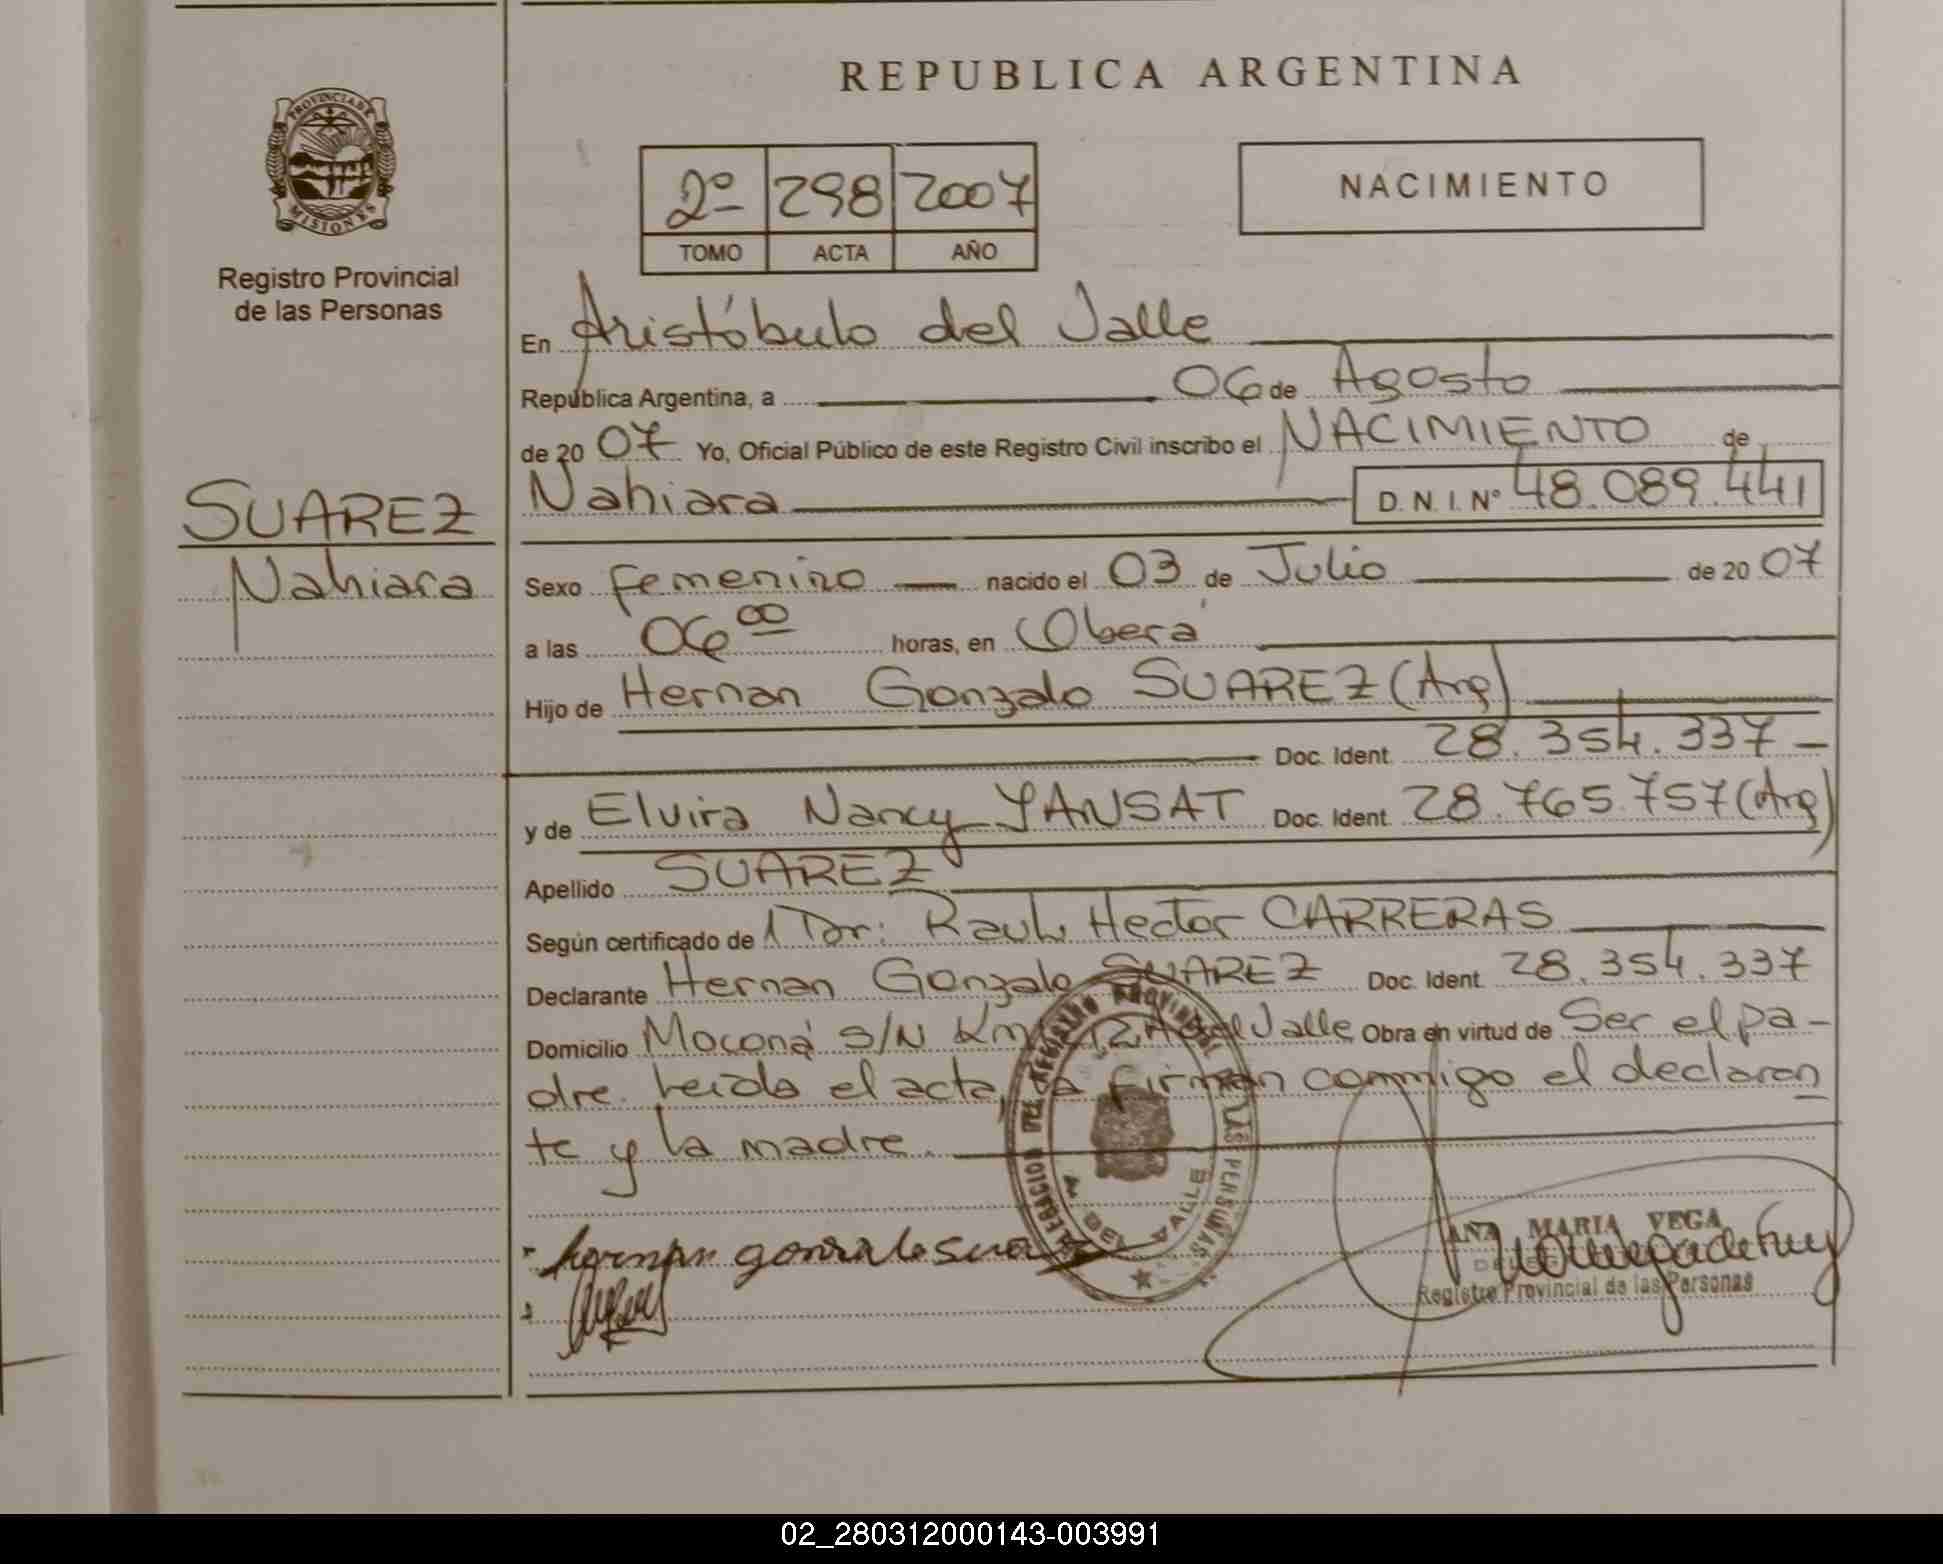 REPUBLICA ARGENTINA
PROVINCIA DE
MISIONES
Registro Provincial
de las Personas
2º 298 2007
TOMO ACTA AÑO
NACIMIENTO
En Aristóbulo del Valle
República Argentina, a 06 de Agosto
de 20 07 Yo, Oficial Público de este Registro Civil inscribo el NACIMIENTO de
SUAREZ
Nahiara
Nahiara D. N. I. Nº 48.089.441
Sexo femenino nacido el 03 de Julio de 20 07
a las 06 00 horas, en Oberá
Hijo de Hernan Gonzalo SUAREZ (Arg)
Doc. Ident. 28.354.337
y de Elvira Nancy YANSAT Doc. Ident. 28.765.757 (Arg)
Apellido SUAREZ
Según certificado de Dr. Raul Hector CARRERAS
Declarante Hernan Gonzalo SUAREZ Doc. Ident. 28.354.337
Domicilio Moconá S/N Km 12 A del Valle Obra en virtud de Ser el pa-
dre. Leída el acta, la firman conmigo el declaran
te y la madre.
DELEGACION DEL REGISTRO PROVINCIAL DE LAS PERSONAS
A. DEL VALLE
hernan gonzalo suarez
ANA MARIA VEGA
Registro Provincial de las Personas
02_280312000143-003991